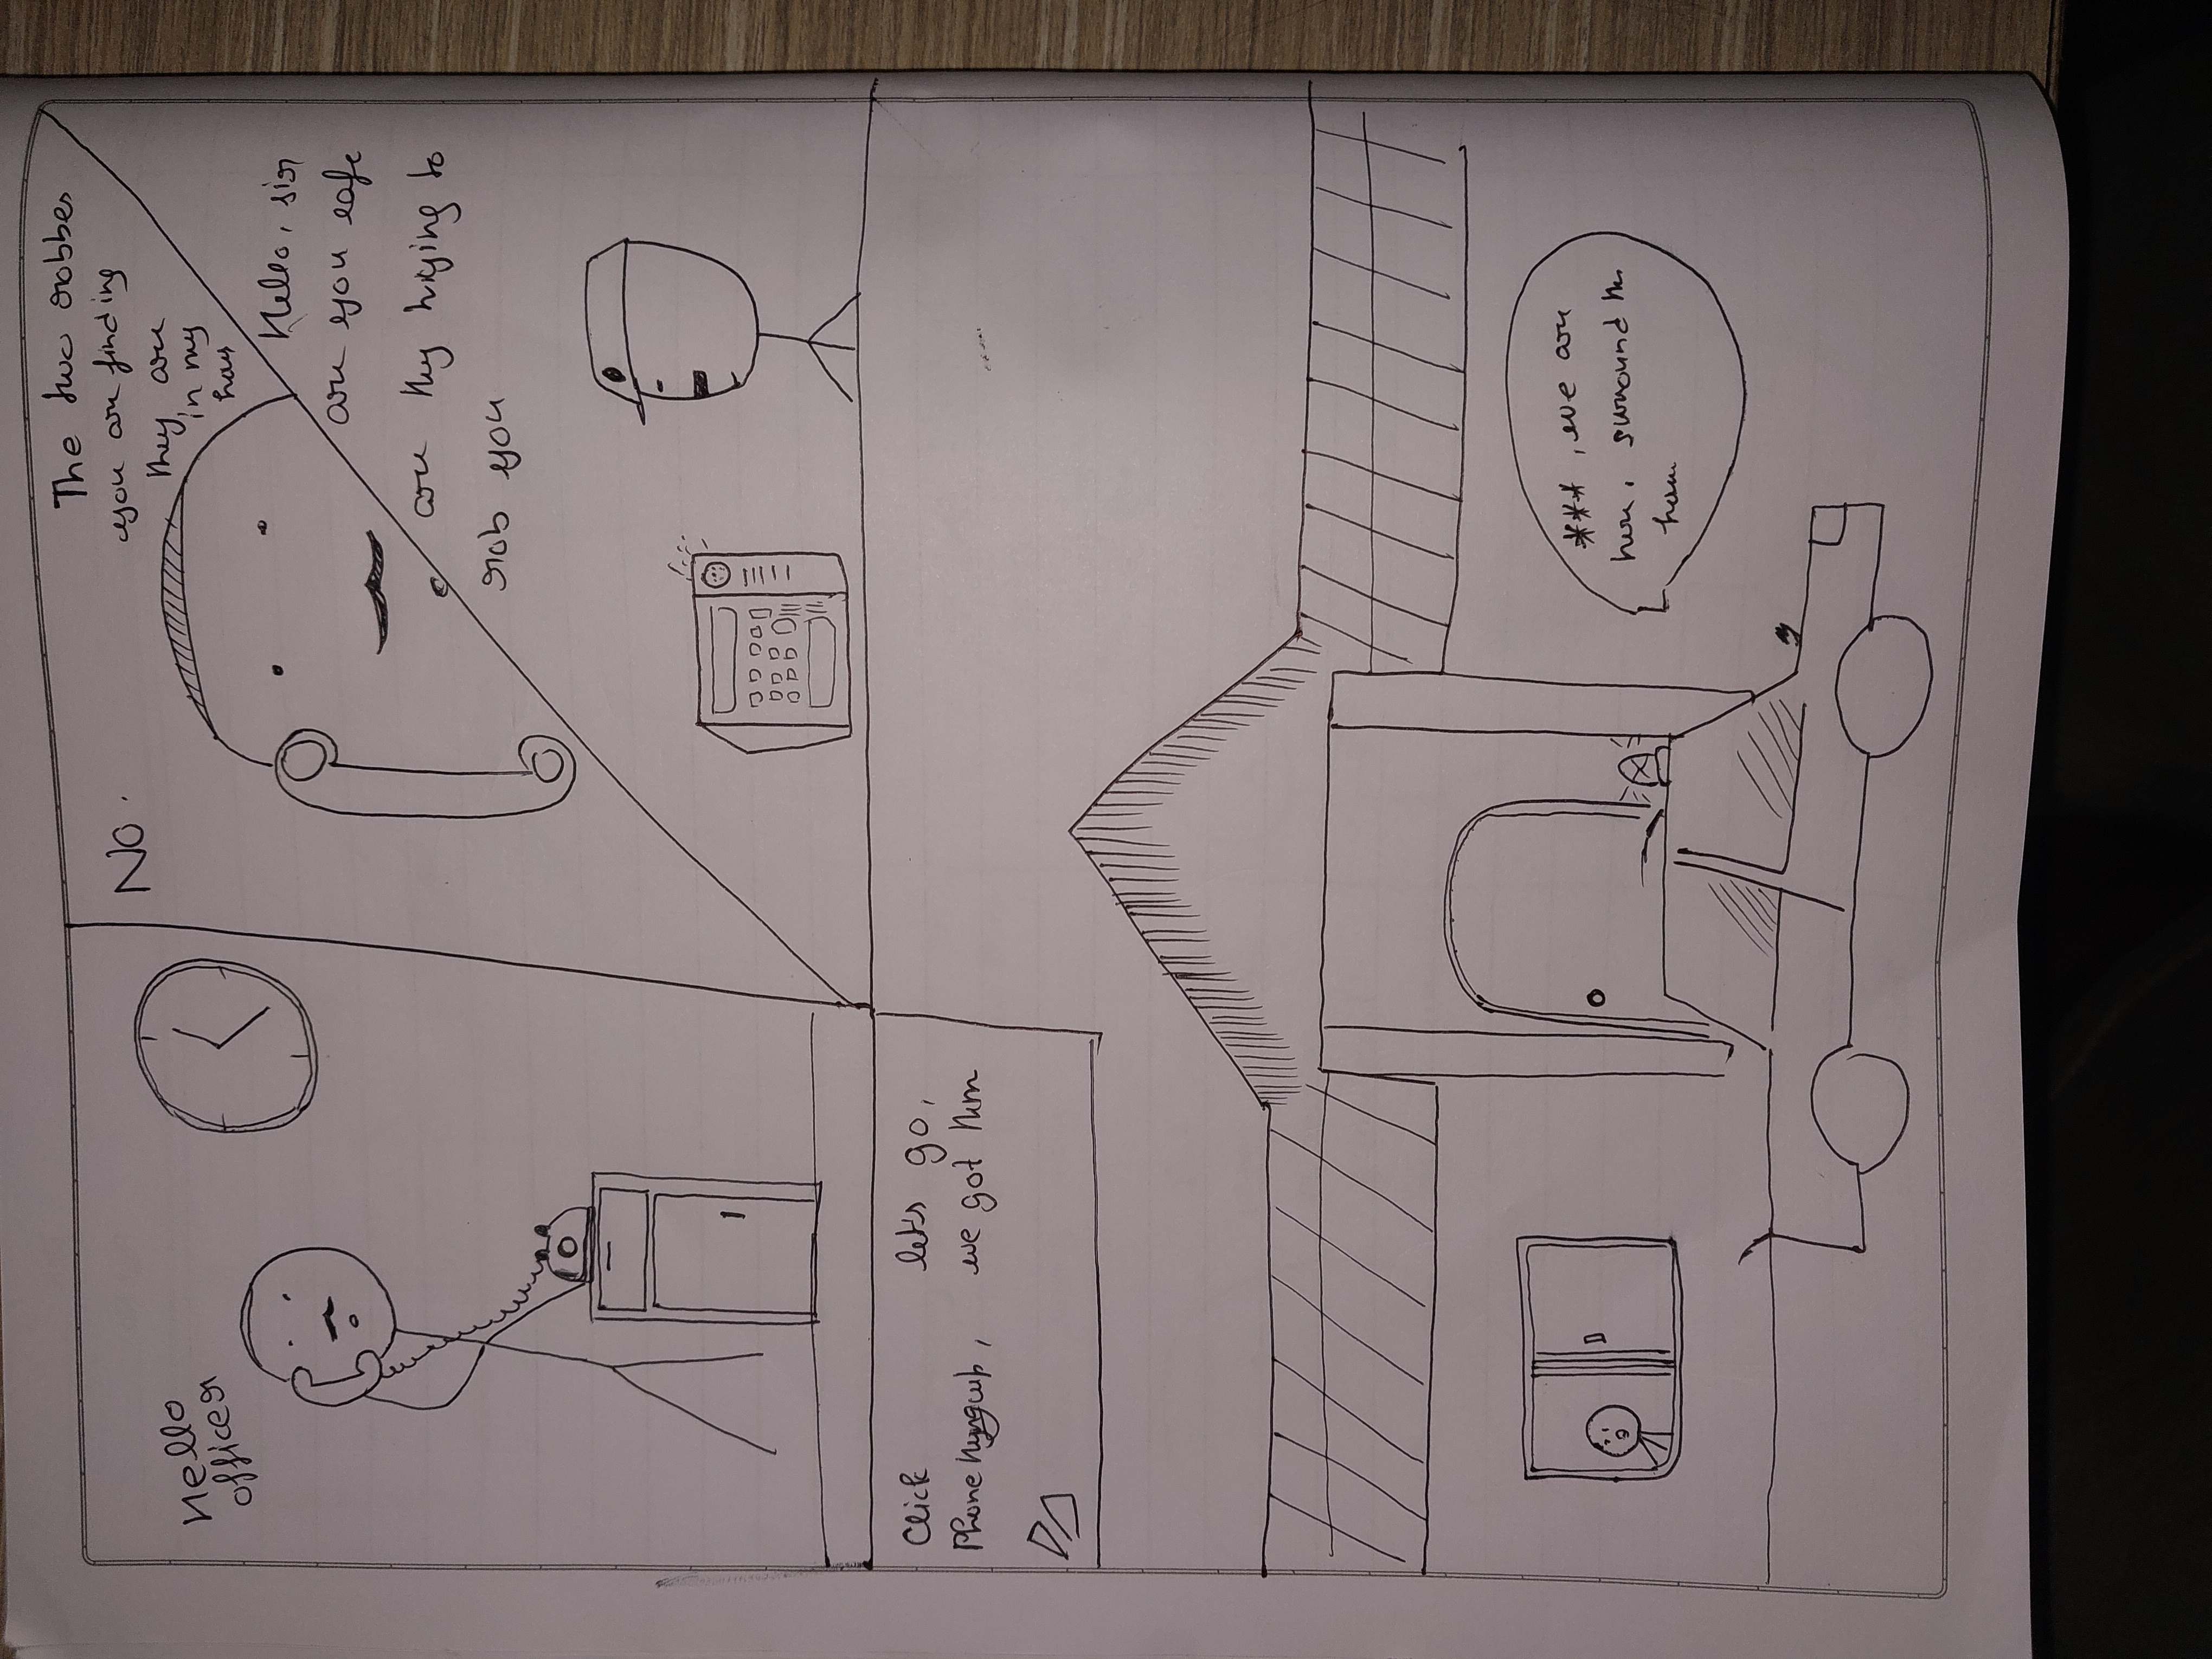 Hello
officer
NO.
The two robbes
you are finding
they are
in my
hous
Hello, sir
are you safe
are they trying to
rob you
Click
Phone hungup,
let's go,
we got him
*** , we are
here. surround the
hous